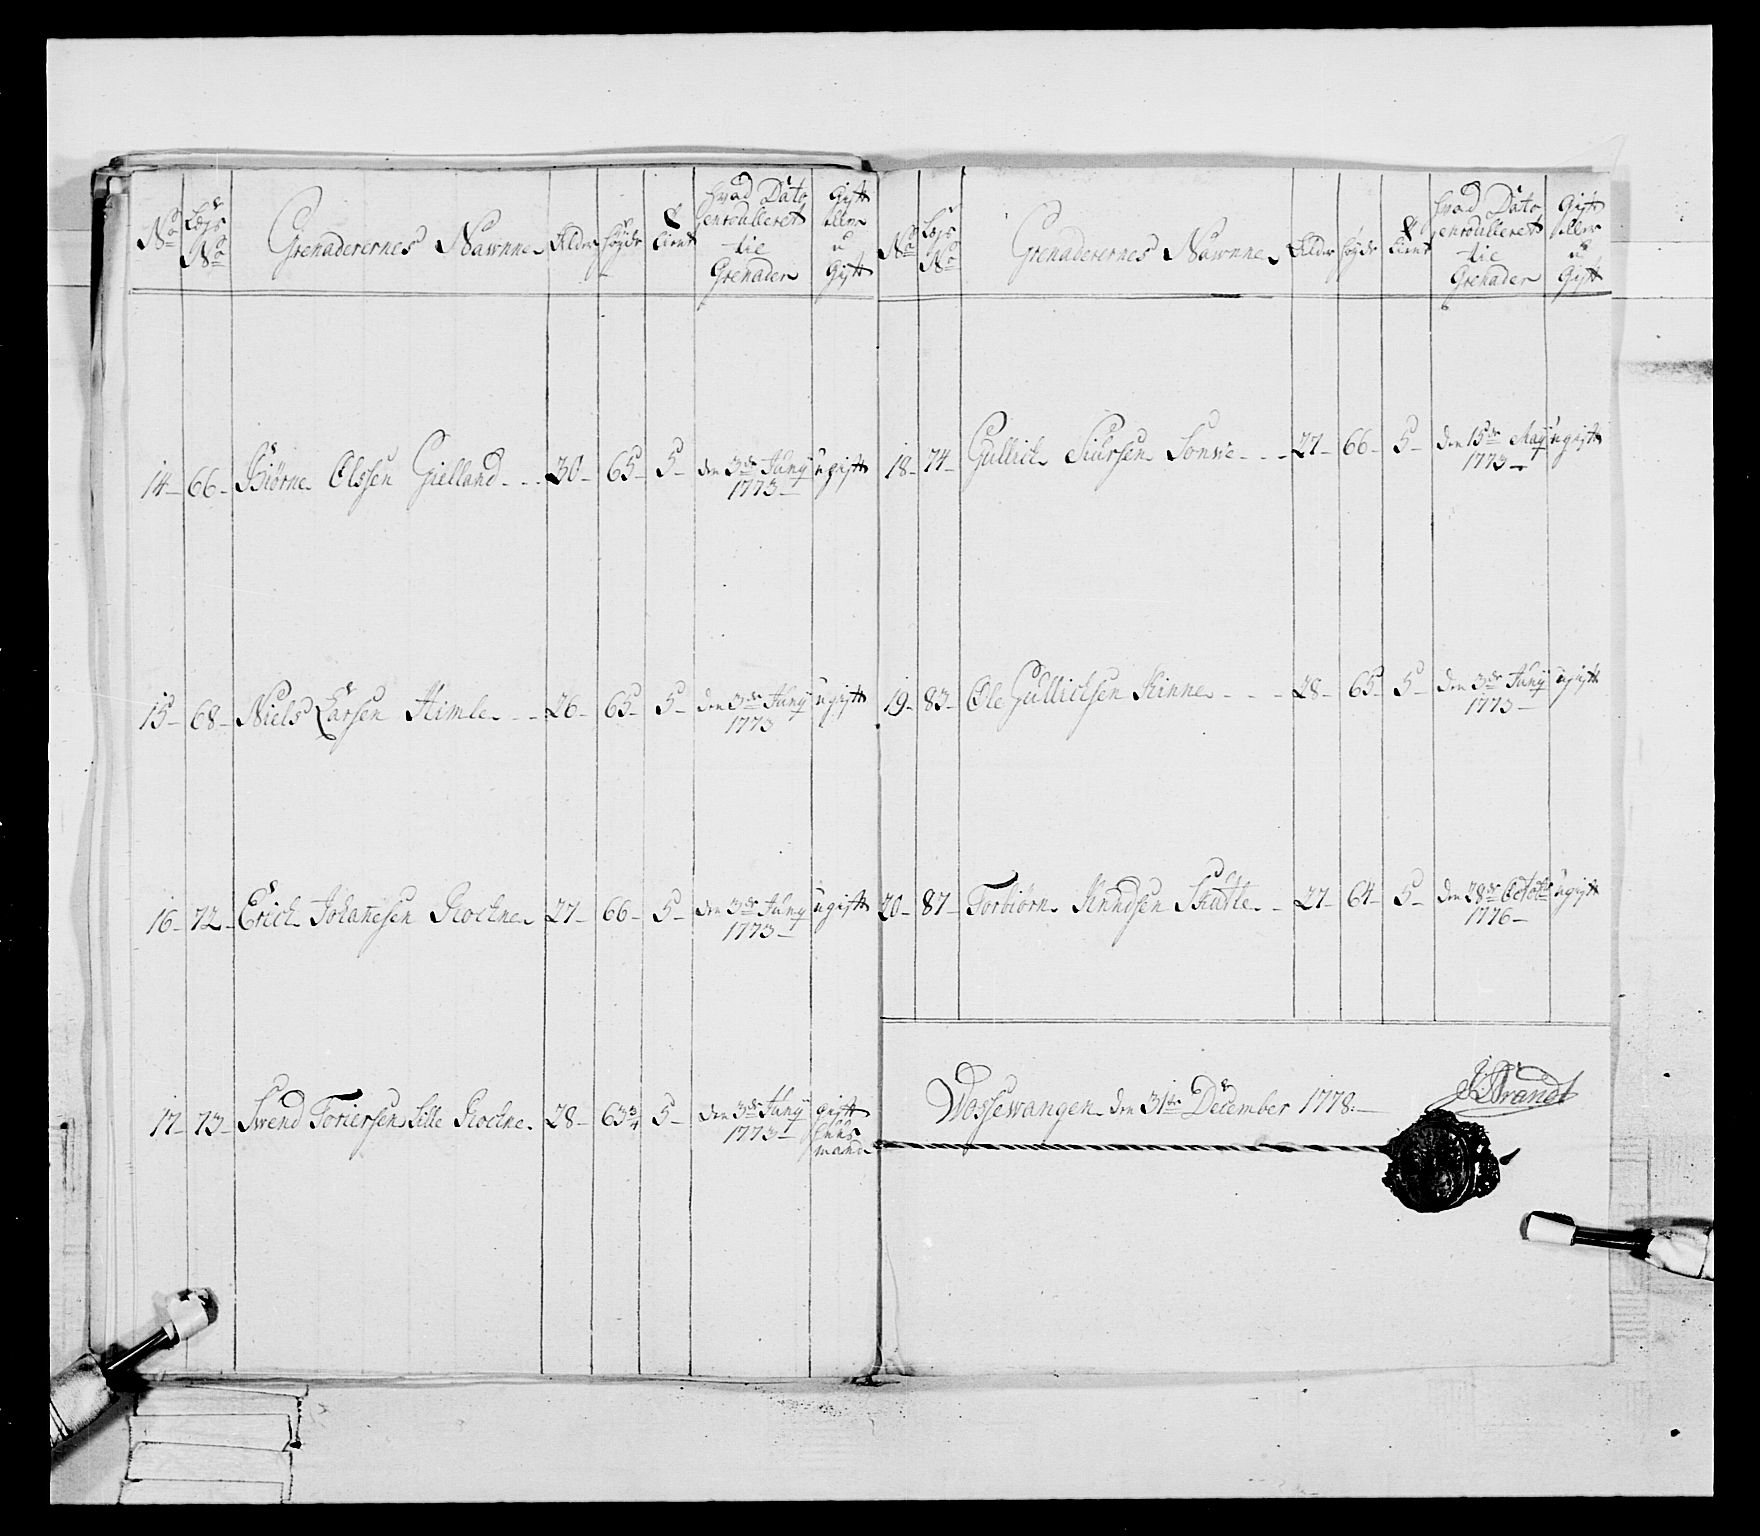 No Lægs No Grenaderernes Nawnne Alder høyde tient hvad Dato enroulleret tie Grenader Gift eller u Gift
14 66 Biörne Olssen Gielland 30 65 5 den 3de Juny 1773 ugift
15 68 Niels Larsen Himle 26 65 5 den 3de Juny 1773 ugift
16 72 Erich Johanesen Rockne 27 66 5 den 3de Juny 1773 ugift
17 73 Swend Toriersen Lille Rockne 28 63 3/4 5 den 3de Juny 1773 gift huus mand
No Lægs No Grenaderernes Nawnne Alder høyde tient hvad Dato enroulleret tie Grenader Gift eller u Gift
18 74 Gullich Siursen Sonve 27 66 5 den 15de May 1773 ugift
19 83 Ole Gullichsen Rinne 28 65 5 den 3de Juny 1773 ugift
20 87 Torbiörn Knudsen Skutle 27 64 5 den 28de Octobr 1776 ugift
Wossewangen den 31te December 1778.
Brandt